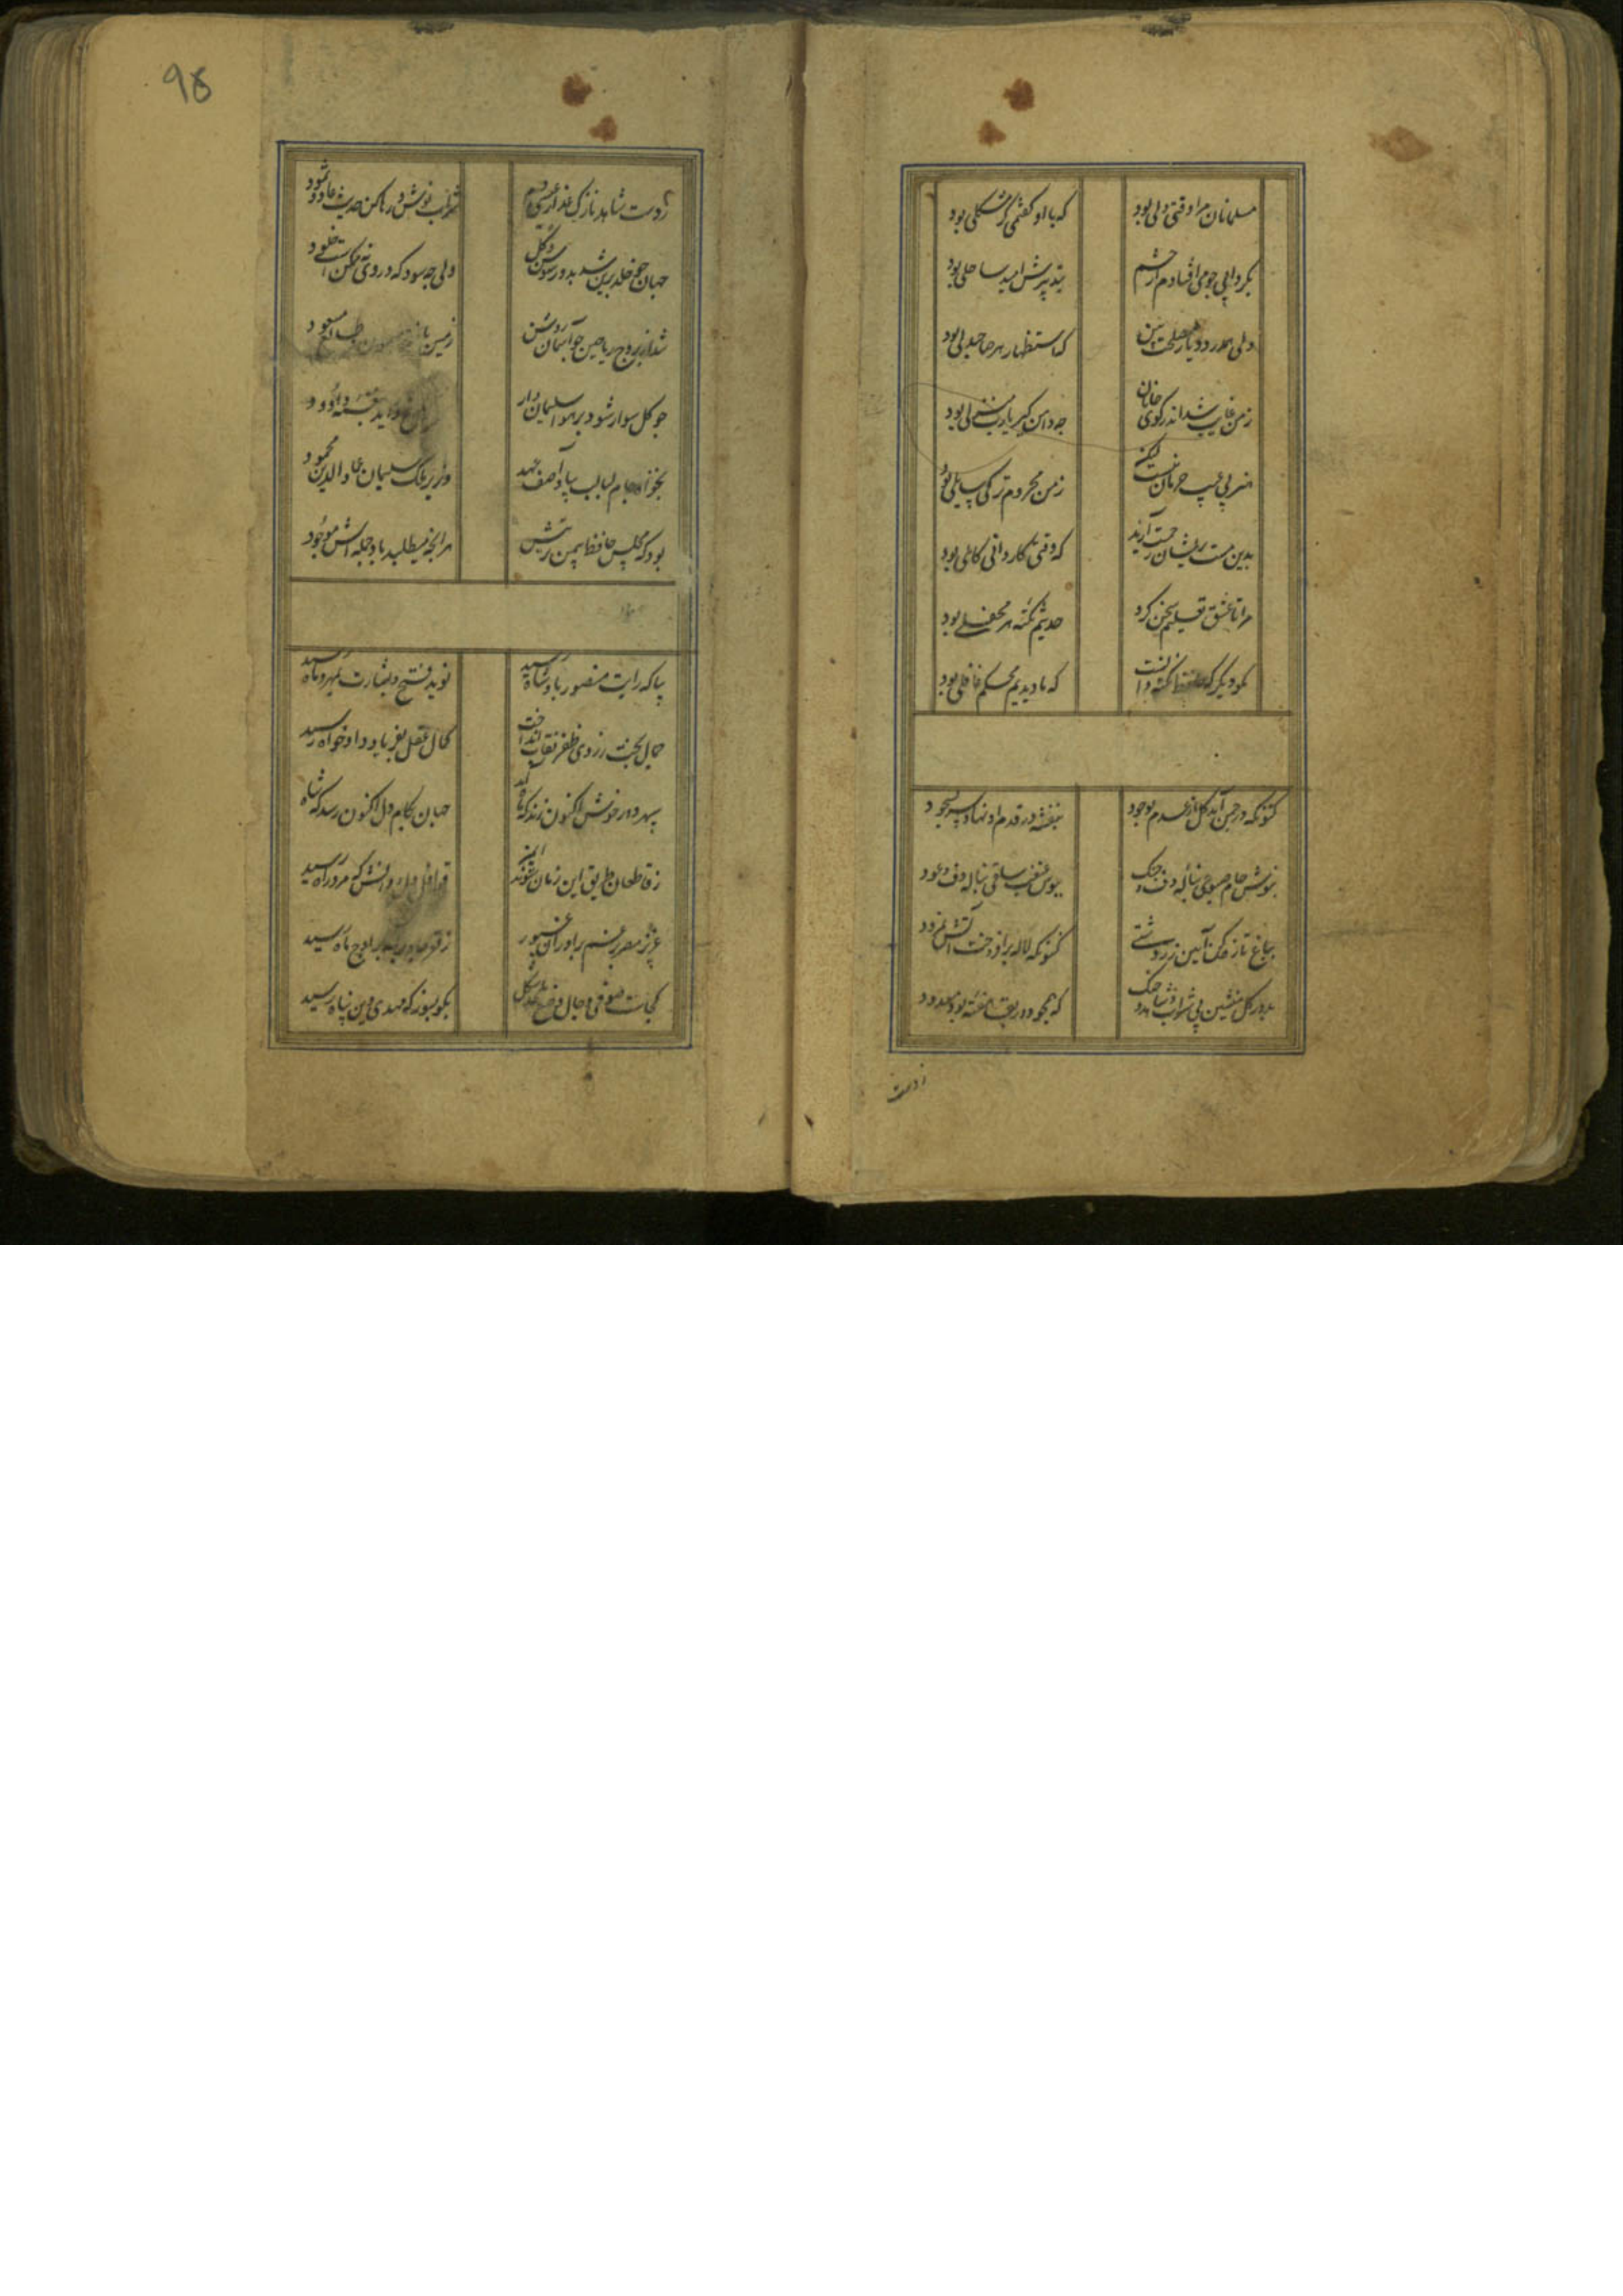 مسلمانان مرا وقتی دلی بود
که با او گفتمی گر مشکلی بود
بگردابی جو می افتادم از چشم
بتدبیرش امید ساحلی بود
دلی همدرد و یار مصلحت بین
که استظهار هر صاحبدلی بود
زمن غایب شد اندر کوی جانان
چه دامن گیر یارب منزلی بود
هنر بی عیب حرمان نیست لیکن
زمن محروم تر کی سایلی بود
بدین مست پریشان رحمت آرید
که وقتی کاردانی کاملی بود
مرا تا عشق تعلیم سخن کرد
حدیثم نکته هر محفلی بود
مگو دیگر که حافظ نکته دانست
که ما دیدیم محکم غافلی بود
کنونکه در چمن آمد گل از عدم بوجود
بنفشه در قدم او نهاد سر بسجود
بنوش جام صبوحی بناله دف و چنگ
ببوس غبغب ساقی بناله دف و عود
بباغ تازه کن آیین زردشتی
کنونکه لاله برافروخت آتش نمرود
بدور گل منشین بی شراب و شاهد و چنگ
که همچو دور بقا هفته بود معدود
ز دست
۹۵
ز دست شاهد نازک عذار عیسی دم
شراب نوش و رها کن حدیث عاد و ثمود
جهان چو خلد برین شد بدور سوسن و گل
ولی چه سود که در وی نه ممکن است خلود
شد از بروج ریاحین چو آسمان روشن
زمین
چو گل سوار شود بر هوا سلیمان وار
نغمه داوود
بخواه جام لبالب بیاد آصف عهد
وزیر ملک سلیمان عماد الدین محمود
بود که مجلس حافظ بیمن تربیتش
هر آنچه میطلبد باد جمله اش موجود
بیا که رایت منصور پادشاه رسید
نوید فتح و بشارت بمهر و ماه رسید
جمال بخت ز روی ظفر نقاب انداخت
کمال عقل بفریاد دادخواه رسید
سپهر دور خوش اکنون زند که ماه آمد
جهان بکام دل اکنون رسد که شاه
ز قاطعان طریق این زمان شوند ایمن
قوافل دل و دانش که مرد راه رسید
عزیز مصر برغم برادران غیور
ز قعر چاه برآمد بر اوج ماه رسید
کجاست صوفی دجال وضع ملحد شکل
بگو بسوز که مهدی دین پناه رسید